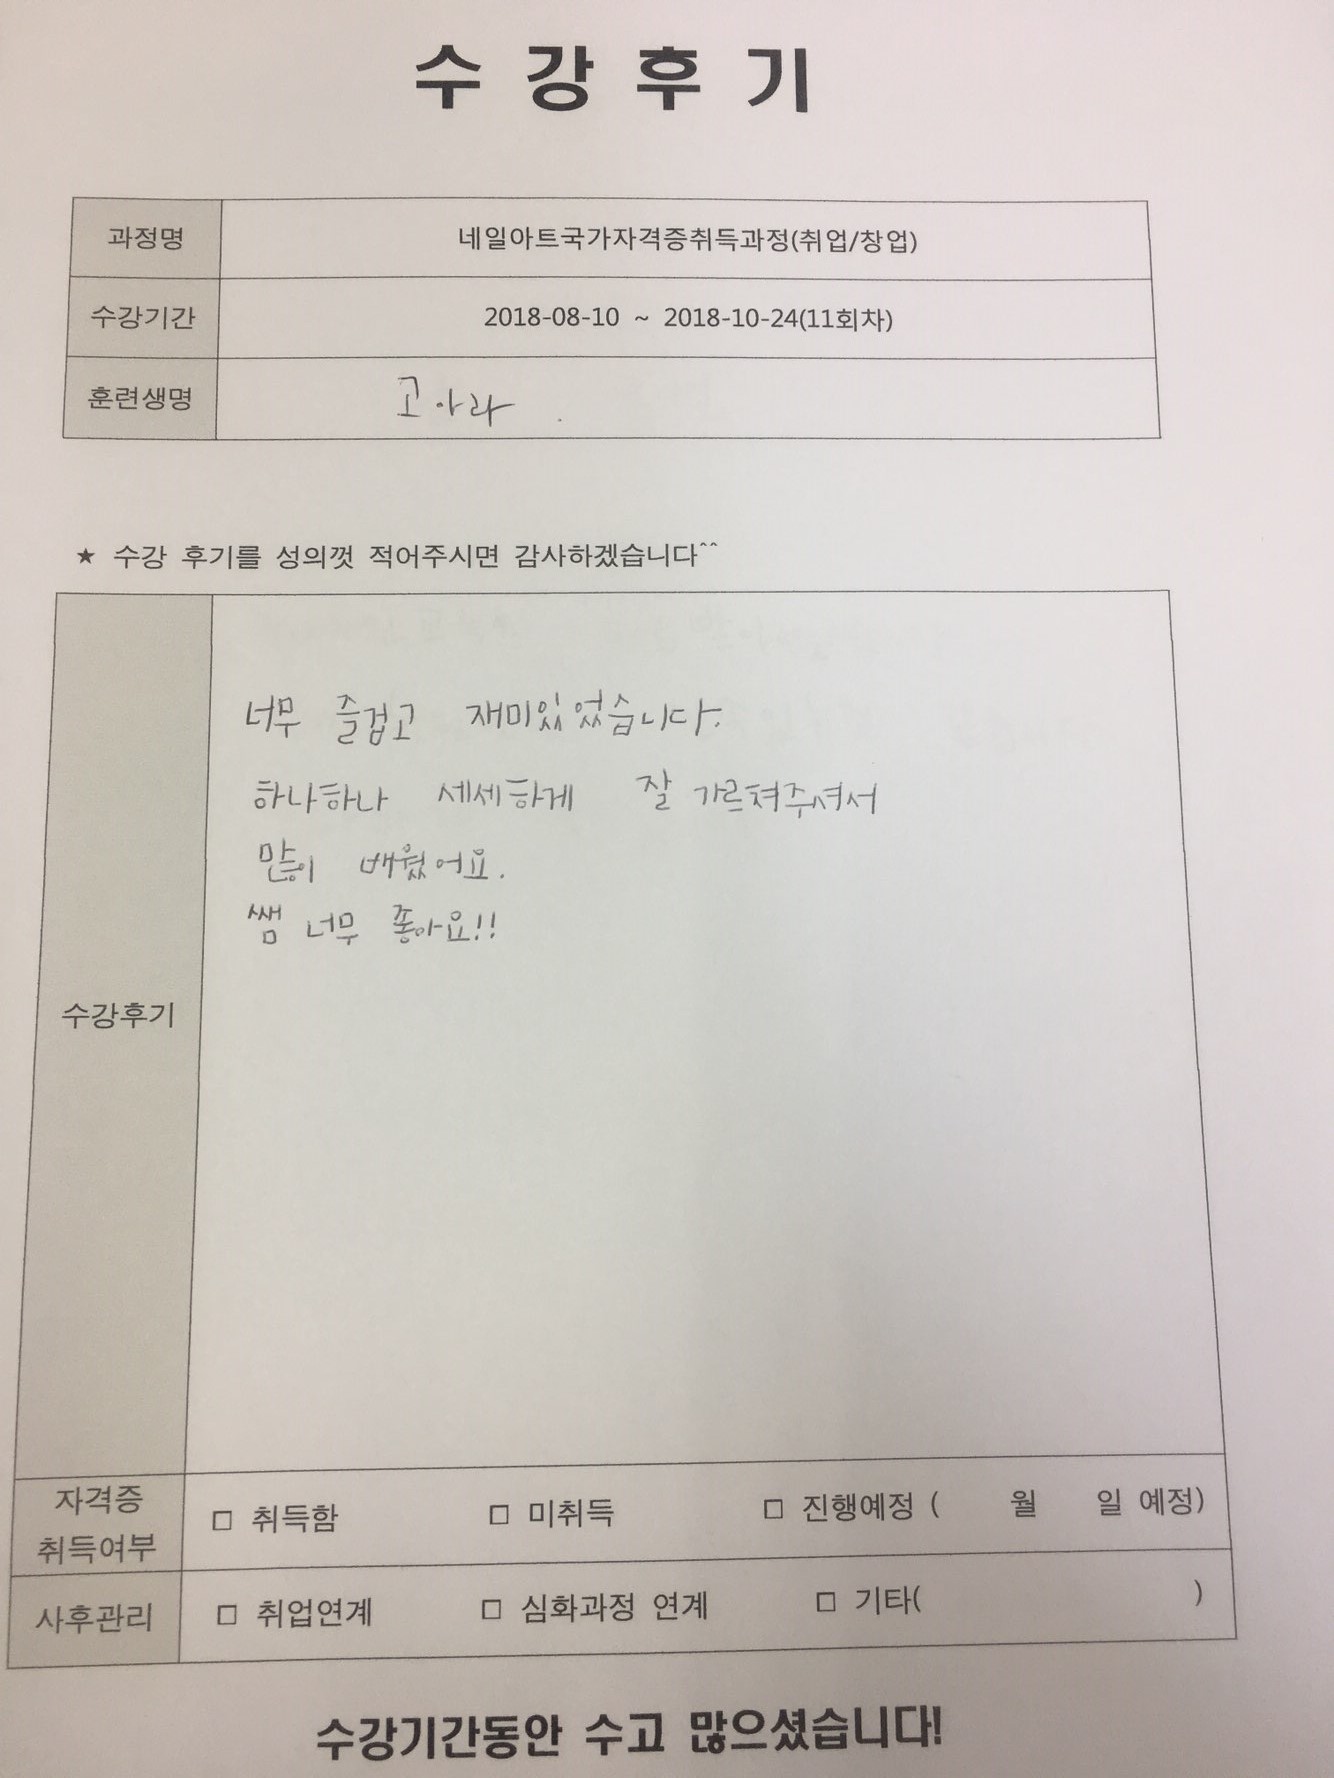 수 강 후 기
과정명 네일아트국가자격증취득과정(취업/창업)
수강기간 2018-08-10 ~ 2018-10-24(11회차)
훈련생명 고아라 .
★ 수강 후기를 성의껏 적어주시면 감사하겠습니다^^
너무 즐겁고 재미있었습니다.
하나하나 세세하게 잘 가르쳐주셔서
많이 배웠어요.
쌤 너무 좋아요!!
수강후기
자격증
취득여부
□ 취득함 □ 미취득 □ 진행예정 ( 월 일 예정)
사후관리 □ 취업연계 □ 심화과정 연계 □ 기타( )
수강기간동안 수고 많으셨습니다!